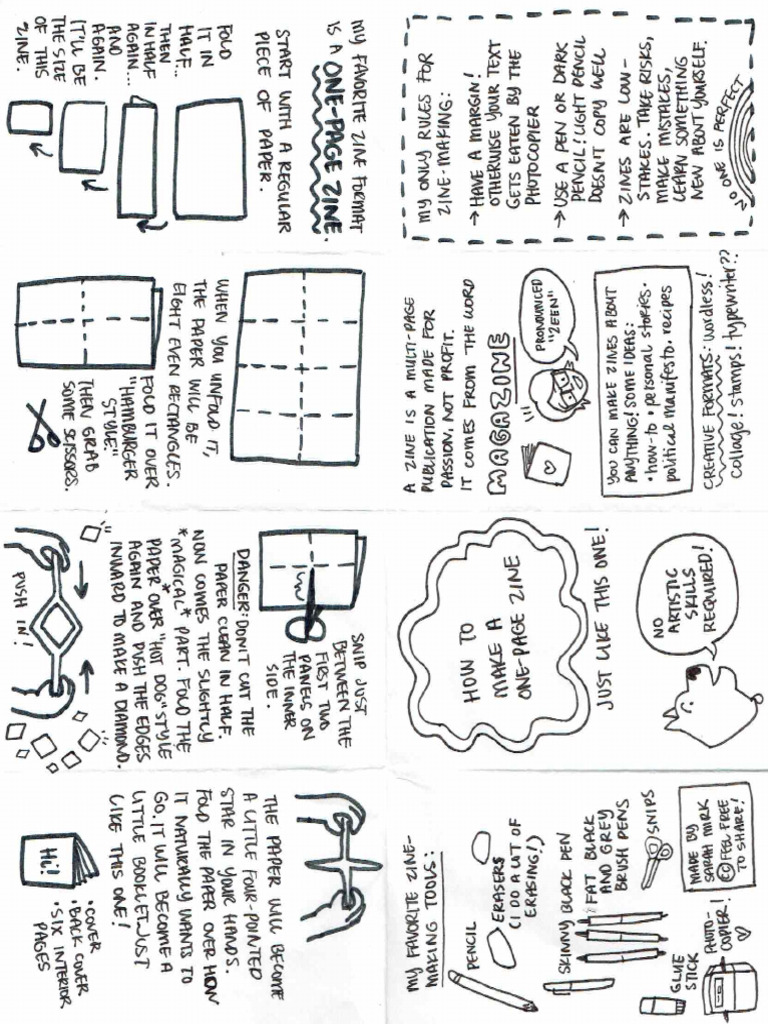 HOW TO
MAKE A
ONE-PAGE ZINE
JUST LIKE THIS ONE!
NO
ARTISTIC
SKILLS
REQUIRED!
A ZINE IS A MULTI-PAGE
PUBLICATION MADE FOR
PASSION, NOT PROFIT.
IT COMES FROM THE WORD
MAGAZINE
PRONOUNCED
"ZEEN"
YOU CAN MAKE ZINES ABOUT
ANYTHING! SOME IDEAS:
• how-to • personal stories •
political manifesto • recipes
CREATIVE FORMATS: wordless!
collage! stamps! typewriter??
MY ONLY RULES FOR
ZINE-MAKING:
→ HAVE A MARGIN!
OTHERWISE YOUR TEXT
GETS EATEN BY THE
PHOTOCOPIER
→ USE A PEN OR DARK
PENCIL! LIGHT PENCIL
DOESN'T COPY WELL
→ ZINES ARE LOW-
STAKES. TAKE RISKS,
MAKE MISTAKES,
LEARN SOMETHING
NEW ABOUT YOURSELF.
NO ONE IS PERFECT
MY FAVORITE ZINE FORMAT
IS A ONE-PAGE ZINE.
START WITH A REGULAR
PIECE OF PAPER.
FOLD
IT IN
HALF...
THEN
IN HALF
AGAIN...
AND
AGAIN.
IT'LL BE
THE SIZE
OF THIS
ZINE.
WHEN YOU UNFOLD IT,
THE PAPER WILL BE
EIGHT EVEN RECTANGLES.
FOLD IT OVER
"HAMBURGER
STYLE."
THEN GRAB
SOME SCISSORS.
SNIP JUST
BETWEEN THE
FIRST TWO
PANELS ON
THE INNER
SIDE.
DANGER: DON'T CUT THE
PAPER CLEAN IN HALF.
NOW COMES THE SLIGHTLY
*MAGICAL* PART. FOLD THE
PAPER OVER "HOT DOG" STYLE
AGAIN AND PUSH THE EDGES
INWARD TO MAKE A DIAMOND.
PUSH IN!
THE PAPER WILL BECOME
A LITTLE FOUR-POINTED
STAR IN YOUR HANDS.
FOLD THE PAPER OVER HOW
IT NATURALLY WANTS TO
GO. IT WILL BECOME A
LITTLE BOOKLET, JUST
LIKE THIS ONE!
Hi!
• COVER
• BACK COVER
• SIX INTERIOR
PAGES
MY FAVORITE ZINE-
MAKING TOOLS:
PENCIL
ERASERS
(I DO A LOT OF
ERASING!)
SKINNY BLACK PEN
FAT BLACK
AND GREY
BRUSH PENS
SNIPS
GLUE
STICK
PHOTO-
COPIER!
MADE BY
SARAH MIRK
cc FEEL FREE
TO SHARE!